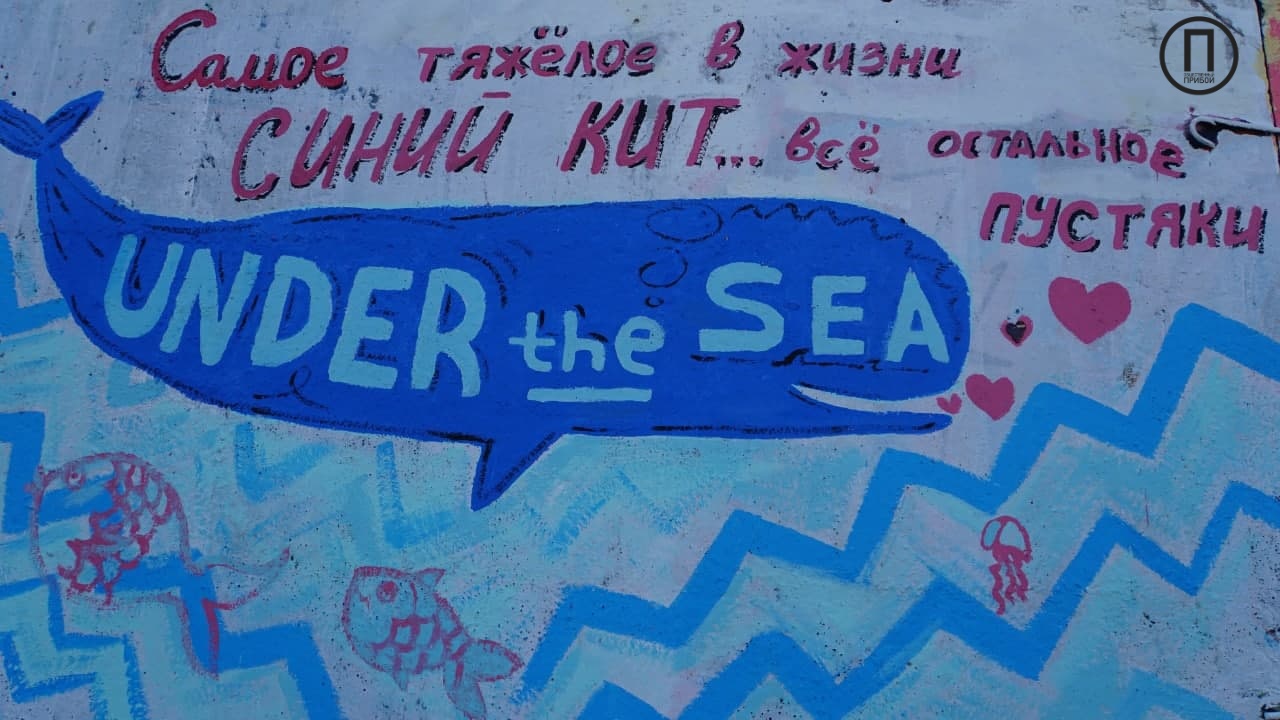 Самое тяжёлое в жизни
СИНИЙ КИТ... всё остальное
пустяки
UNDER the SEA
П
ПРИБОЙ